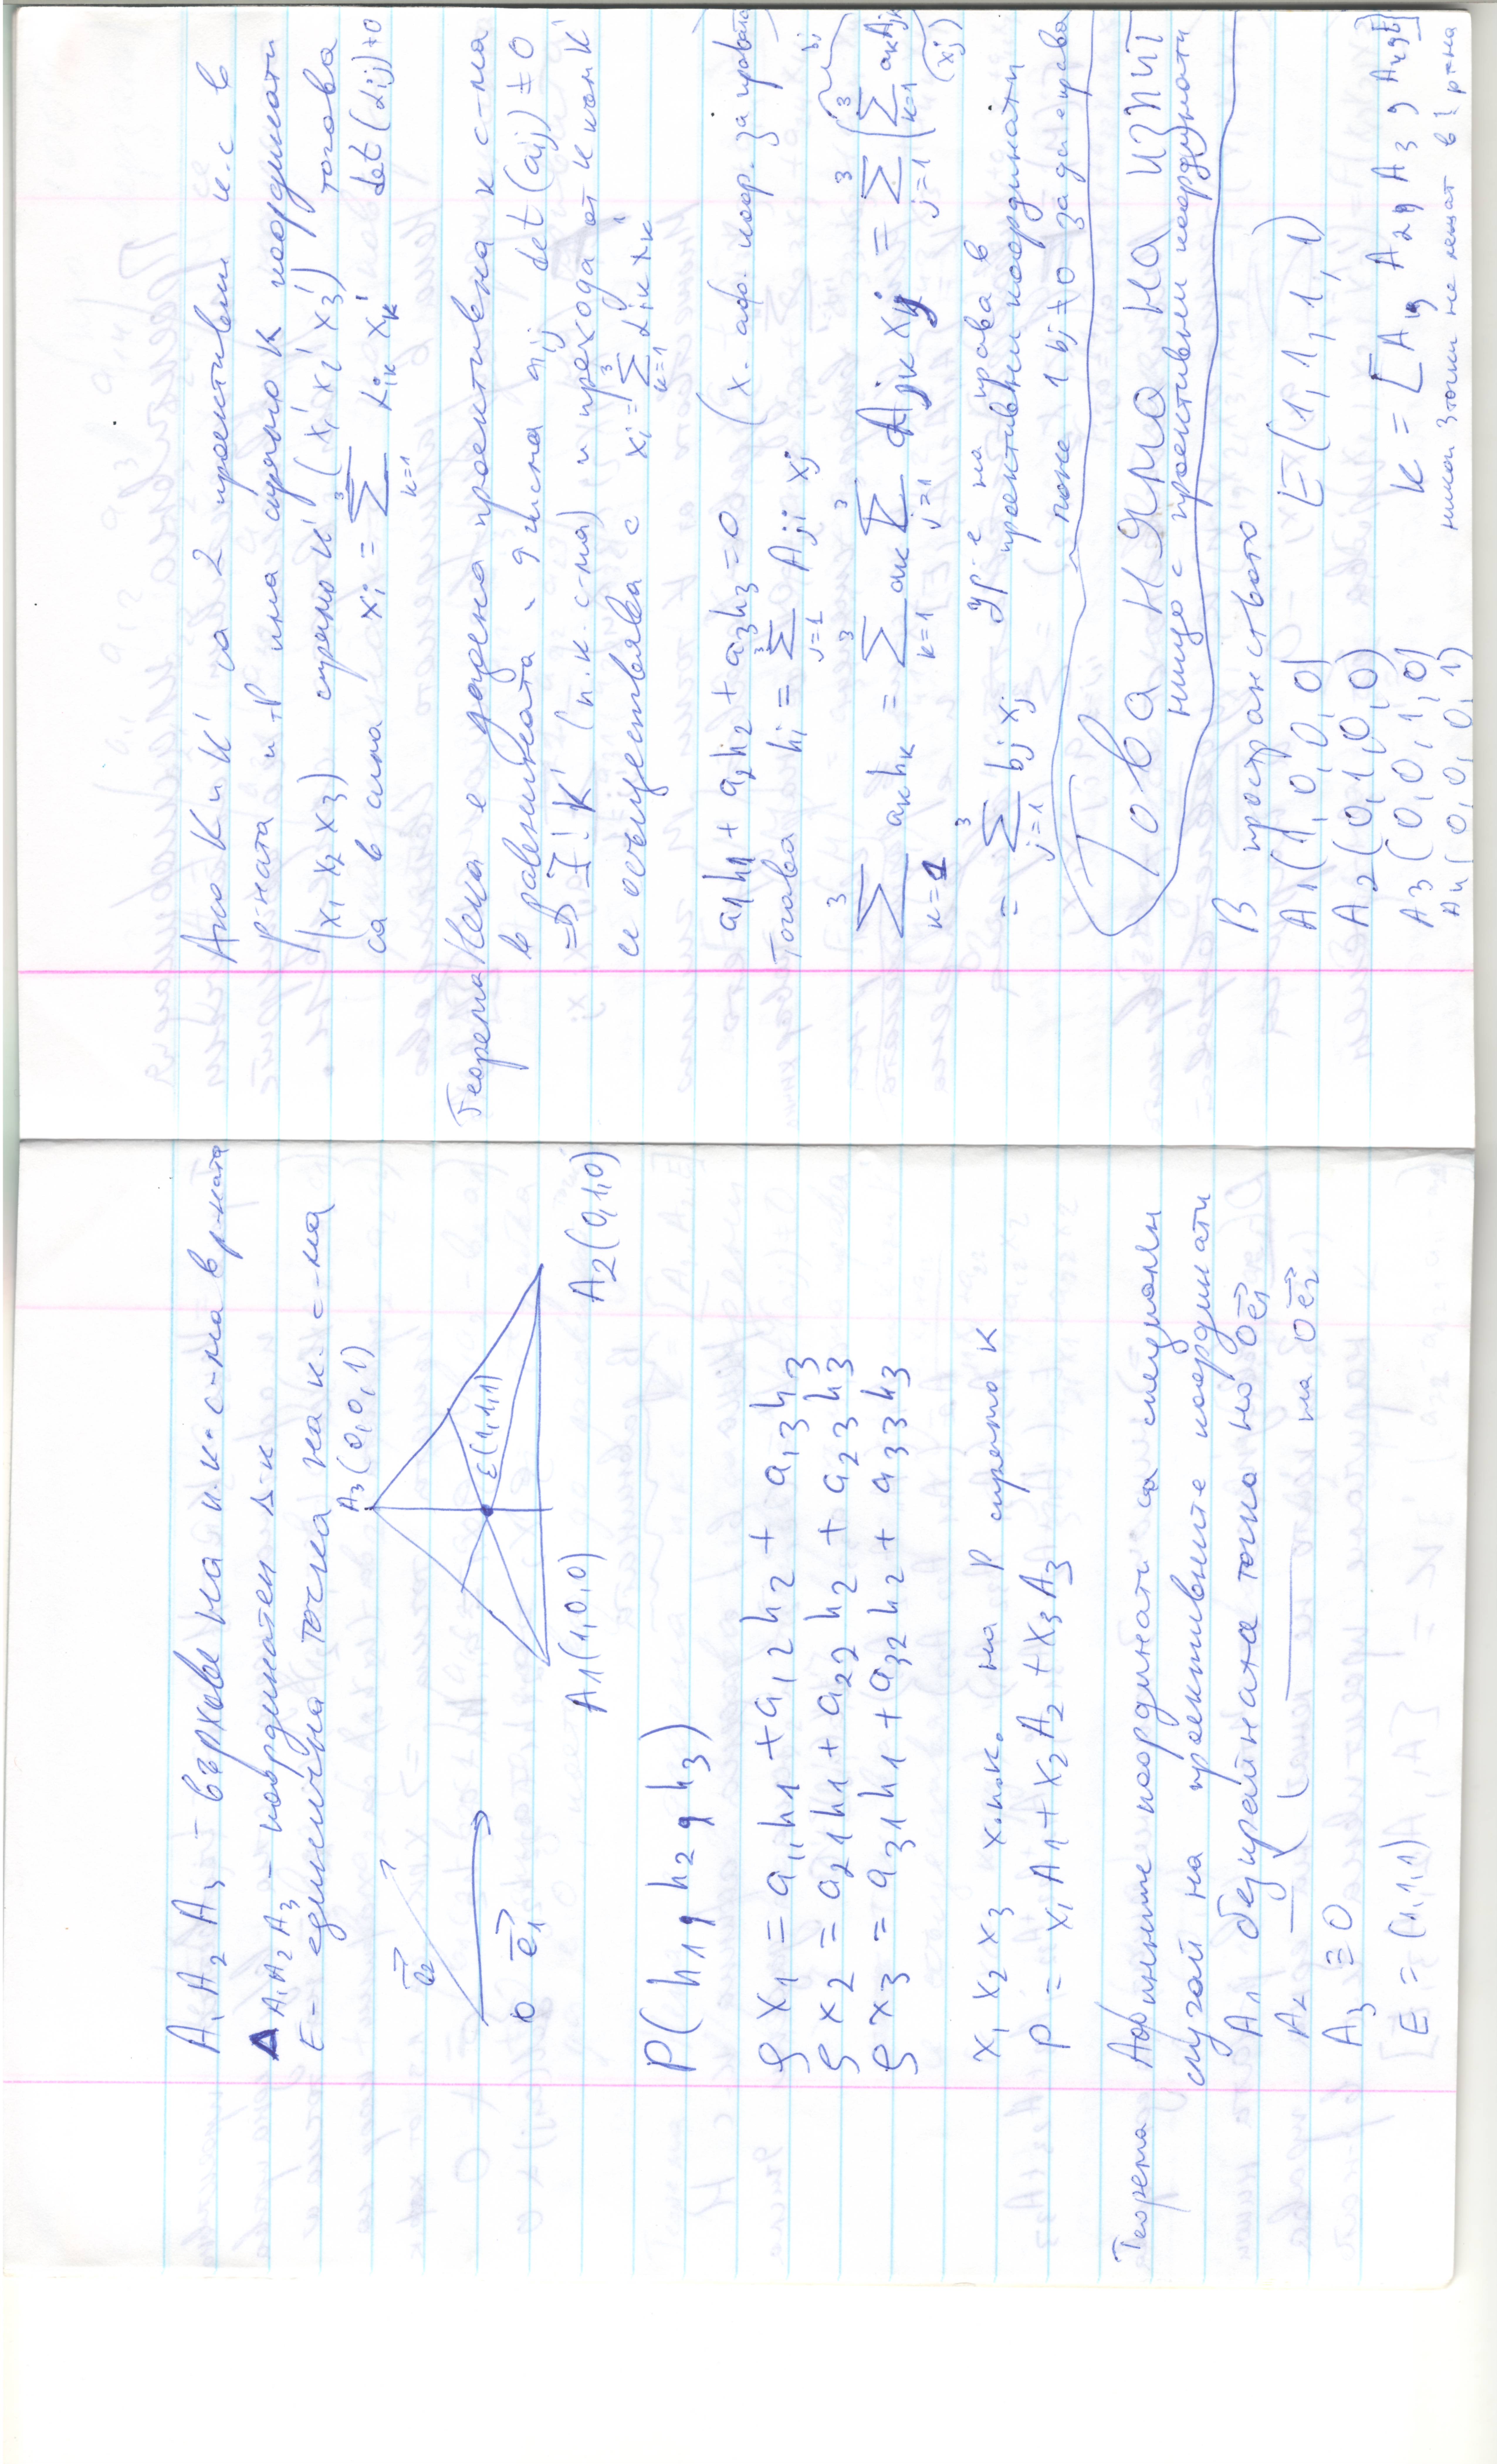 A₁ A₂ A₃ - върхове на п.к.с-ма в р-ната
Δ A₁A₂A₃ - координатен Δ-к
E - единична точка на к. с-ма
A₃(0,0,1)
E(1,1,1)
A₁(1,0,0)
A₂(0,1,0)
e₂
O e₁
P(h₁, h₂, h₃)
ρx₁ = a₁₁h₁ + a₁₂h₂ + a₁₃h₃
ρx₂ = a₂₁h₁ + a₂₂h₂ + a₂₃h₃
ρx₃ = a₃₁h₁ + a₃₂h₂ + a₃₃h₃
x₁ x₂ x₃ х.п.к. на P спрямо K
P = x₁A₁ + x₂A₂ + x₃A₃
Теорема Афинните координати са специален
случай на проективните координати
A₁ безкрайната точка на Oe₁
A₂ — на Oe₂
A₃ ≡ O
[E = (1,1,1)
Ако K и K' са 2 проективни к.с в
р-ната и т.P има спрямо K координати
(x₁ x₂ x₃) спрямо K' (x₁' x₂' x₃') тогава
са в сила xᵢ = ∑³ₖ₌₁ αᵢₖ xₖ' det(αᵢⱼ)≠0
Теорема Нека е дадена проективна к с-ма
в равнината, 9 числа aᵢⱼ det(aᵢⱼ) ≠ 0
=> ∃! K' (п.к. с-ма) и прехода от K към K'
се осъществява с xᵢ = ∑³ₖ₌₁ αᵢₖ xₖ'
a₁h₁ + a₂h₂ + a₃h₃ = 0 (х. аф. коор. за правата
Тогава hᵢ = ∑³ⱼ₌₁ Aⱼᵢ xⱼ
∑³ₖ₌₁ aₖhₖ = ∑³ₖ₌₁ aₖ ∑³ⱼ₌₁ Aⱼₖ xⱼ = ∑³ⱼ₌₁ (∑³ₖ₌₁ aₖAⱼₖ) (xⱼ)
bⱼ
= ∑³ⱼ₌₁ bⱼ xⱼ ур-е на права в
проективни координати
поне 1 bⱼ ≠ 0 за да е права
Това НЯМА НА ИЗПИТ
нищо с проективни координати
В пространството
A₁(1,0,0,0)
A₂(0,1,0,0) E(1,1,1,1)
A₃(0,0,1,0)
A₄(0,0,0,1) K = [A₁, A₂, A₃, A₄, E]
никои 3 точки не лежат в 1 р-нна